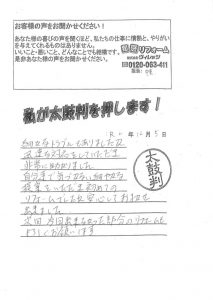 お客様の声をお聞かせください！
あなた様の喜びの声を聞くほど、私たちの仕事に情熱と、やりがい
を与えてくれるものはありません。
いいこと・悪いこと、どんなことでも結構です。
是非あなた様の声をお聞かせください。
リフォーム
0120-063-411
私が太鼓判を押します！
太鼓判
細かなトラブルもありましたが
迅速な対応をしていただき
非常に助かりました。
自分達で気づかない細やかな
提案をいただき初めての
リフォームでしたが安心してお任せ
出来ました。
次回、今回出来なかった部分のリフォームも
よろしくお願いします